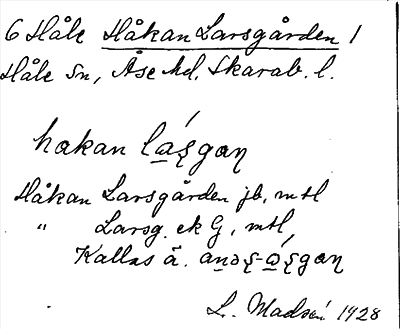 6 Håle Håkan Larsgården 1
Håle Sn, Åse hd. Skarab. l.
hakan
Håkan Larsgården jb, mtl
" Larsg. ek G, mtl,
Kallas ä.
L. Madsén 1928